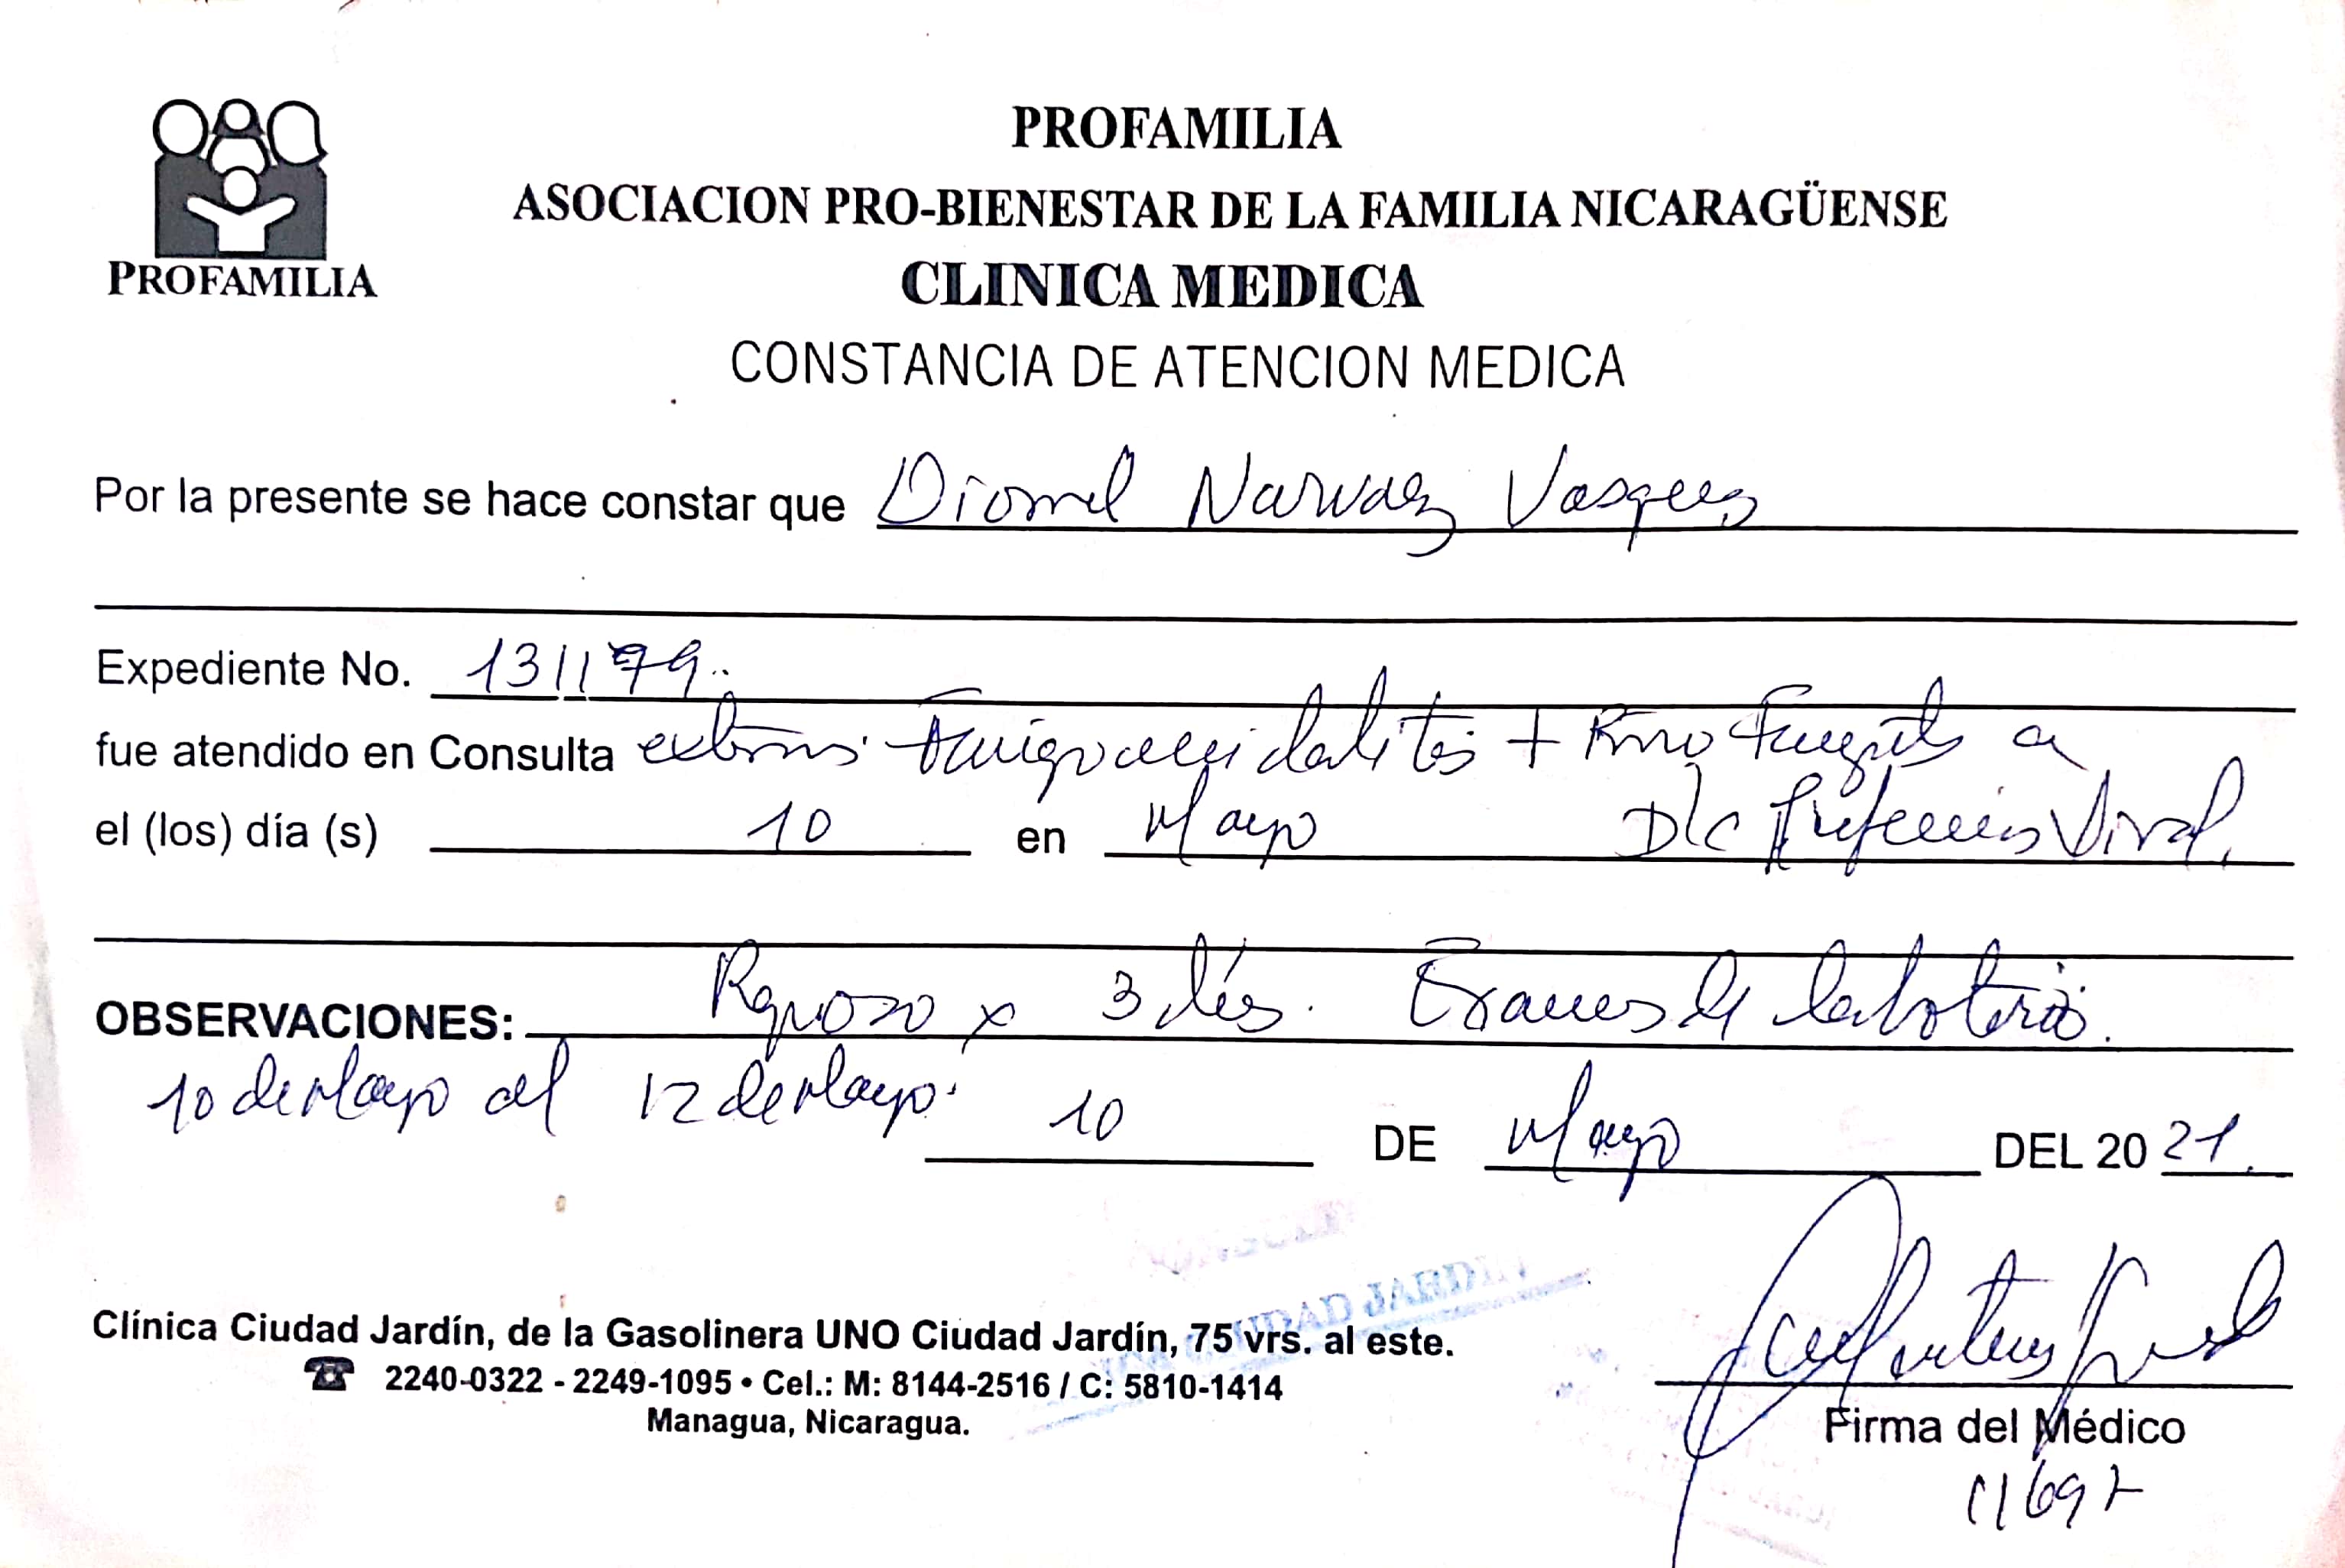 PROFAMILIA
ASOCIACION PRO-BIENESTAR DE LA FAMILIA NICARAGÜENSE
PROFAMILIA
CLINICA MEDICA
CONSTANCIA DE ATENCION MEDICA
Por la presente se hace constar que Diomel Narvaez Vasquez
Expediente No. 131179
fue atendido en Consulta externa Faringoamigdalitis + a
el (los) día (s) 10 en Mayo D/C Viral.
OBSERVACIONES: Reposo x 3 días. Exames de laboratorio.
10 de Mayo al 12 de Mayo. 10 DE Mayo DEL 2021.
Clínica Ciudad Jardín, de la Gasolinera UNO Ciudad Jardín, 75 vrs. al este.
2240-0322 - 2249-1095 • Cel.: M: 8144-2516 / C: 5810-1414
Managua, Nicaragua.
Firma del Médico
11697